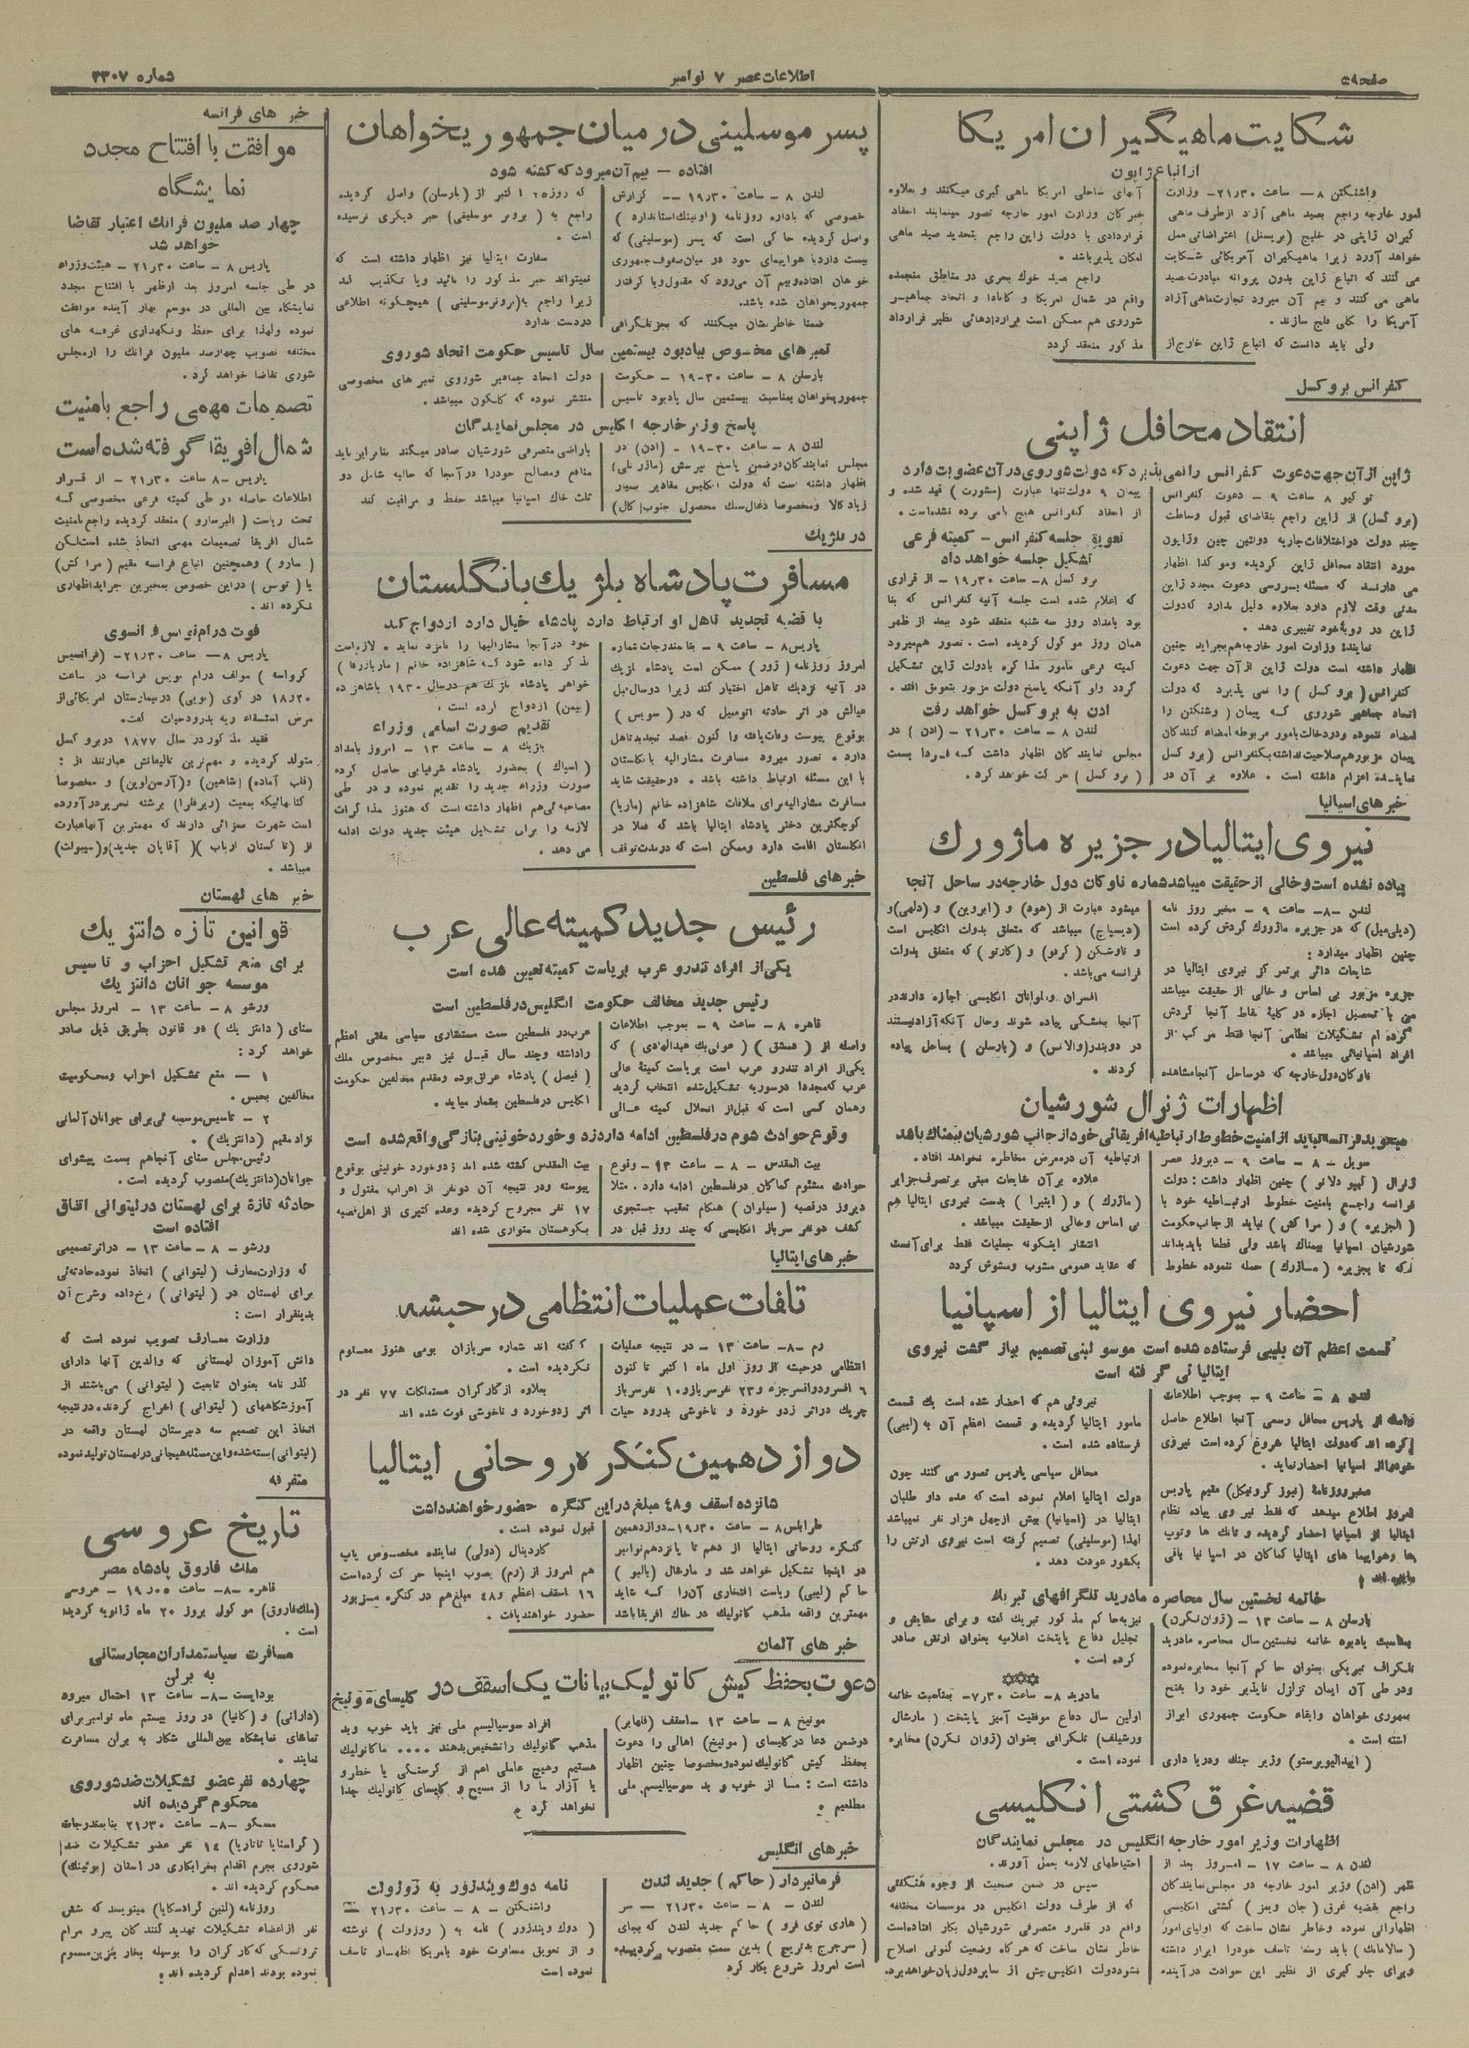 صفحه ۵
اطلاعات عصر ۷ نوامبر
شماره ۳۳۰۷
شکایت ماهیگیران امریکا
از اتباع ژاپون
واشنگتن ۸ — ساعت ۲۱ر۳۰ — وزارت
امور خارجه راجع بصید ماهی آزاد از طرف ماهی
گیران ژاپنی در خلیج (بریستل) اعتراضاتی بعمل
خواهد آورد زیرا ماهیگیران آمریکائی شکایت
می کنند که اتباع ژاپن بدون پروانه مبادرت بصید
ماهی می کنند و بیم آن میرود تجارت ماهی آزاد
آمریکا را بکلی فلج سازند.
ولی باید دانست که اتباع ژاپن خارج از
آبهای ساحلی امریکا ماهی گیری میکنند و بعلاوه
خبرگان وزارت امور خارجه تصور مینمایند انعقاد
قراردادی با دولت ژاپن راجع بتحدید صید ماهی
امکان پذیر باشد.
راجع بصید خوك بحری در مناطق منجمده
واقع در شمال امریکا و کانادا و اتحاد جماهیر
شوروی هم ممکن است قراردادهائی نظیر قرارداد
مذکور منعقد گردد
کنفرانس بروکسل
انتقاد محافل ژاپنی
ژاپن از آن جهت دعوت کنفرانس را نمی پذیرد که دولت شوروی در آن عضویت دارد
توکیو ۸ ساعت ۹ — دعوت کنفرانس
(بروکسل) از ژاپن راجع بتقاضای قبول وساطت
چند دولت در اختلافات جاریه دولتین چین و ژاپون
مورد انتقاد محافل ژاپن گردیده و مؤکدا اظهار
می دارند که مسئله بررسی دعوت مجدد ژاپن
مدتی وقت لازم دارد بعلاوه دلیل ندارد که دولت
ژاپن در رویۀ خود تغییری دهد.
نمایندۀ وزارت امور خارجه هم بجراید چنین
اظهار داشته است دولت ژاپن از آن جهت دعوت
کنفرانس (بروکسل) را نمی پذیرد که دولت
اتحاد جماهیر شوروی که پیمان (وشنگتن) را
امضاء ننموده و در دخالت بامور مربوطه امضاء کنندگان
پیمان مزبور هم صلاحیت نداشته بکنفرانس (بروکسل)
نماینده اعزام داشته است. علاوه بر آن در
پیمان ۹ دولت تنها عبارت (مشورت) قید شده و
از انعقاد کنفرانس هیچ نامی برده نشده است.
تعویق جلسه کنفرانس – کمیته فرعی
تشکیل جلسه خواهد داد
بروکسل ۸- ساعت ۱۹ر۳۰ — از قراری
که اعلام شده است جلسه آتیه کنفرانس که بنا
بود بامداد روز سه شنبه منعقد شود ببعد از ظهر
همان روز موکول گردیده است. تصور هم میرود
کمیته فرعی مامور مذاکره با دولت ژاپن تشکیل
گردد ولو آنکه پاسخ دولت مزبور بتعویق افتد.
ادن به بروکسل خواهد رفت
لندن ۸ — ساعت ۲۱ر۳۰ — (ادن) در
مجلس نمایندگان اظهار داشت که فردا بسمت
(بروکسل) حرکت خواهد کرد.
خبرهای اسپانیا
نیروی ایتالیا در جزیره ماژورك
پیاده نشده است و خالی از حقیقت میباشد شماره ناوگان دول خارجه در ساحل آنجا
لندن –۸– ساعت ۹ — مخبر روز نامه
(دیلی میل) که در جزیره ماژورك گردش کرده است
چنین اظهار میدارد:
شایعات دائر بر تمرکز نیروی ایتالیا در
جزیره مزبور بی اساس و خالی از حقیقت میباشد
من با تحصیل اجازه در کلیۀ نقاط آنجا گردش
کرده ام تشکیلات نظامی آنجا فقط مرکب از
افراد اسپانیائی میباشد.
ناوگان دول خارجه که در ساحل آنجا مشاهده
میشود عبارت از (هود) و (ابروین) و (دلهی) و
(دیسپاچ) میباشد که متعلق بدولت انگلیس است
و ناوشکن (کردو) و (کارتو) که متعلق بدولت
فرانسه می باشد.
افسران و ملوانان انگلیسی اجازه دارند در
آنجا بخشکی پیاده شوند و حال آنکه آزاد نیستند
در دو بندر (والانس) و (بارسلن) بساحل پیاده
گردند.
اظهارات ژنرال شورشیان
میگوید فرانسه نباید از امنیت خطوط ارتباطیه افریقائی خود از جانب شورشیان بیمناك باشد
سویل -۸ – ساعت ۹ – دیروز عصر
ژنرال (کیپو دلانو) چنین اظهار داشت: دولت
فرانسه راجع بامنیت خطوط ارتباطیه خود با
(الجزیره) و (مراکش) نباید از جانب حکومت
شورشیان اسپانیا بیمناك باشد ولی قطعا باید بداند
که تا بجزیره (ماژرك) حمله ننموده خطوط
ارتباطیه آن در معرض مخاطره نخواهد افتاد.
علاوه بر آن شایعات مبنی بر تصرف جزایر
(ماژرك) و (ایبیزا) بدست نیروی ایتالیا هم
بی اساس و خالی از حقیقت میباشد.
انتشار اینگونه جعلیات فقط برای آنست
که عقاید عمومی مشوب و مشوش گردد
احضار نیروی ایتالیا از اسپانیا
قسمت اعظم آن بلیبی فرستاده شده است موسولینی تصمیم بباز گشت نیروی
ایتالیائی گرفته است
لندن ۸ – ساعت ۹ – بموجب اطلاعات
واصله از پاریس محافل رسمی آنجا اطلاع حاصل
کرده اند که دولت ایتالیا شروع کرده است نیروی
خود را از اسپانیا احضار نماید.
مخبر روزنامۀ (نیوز کرونیکل) مقیم پاریس
امروز اطلاع میدهد که فقط نیروی پیاده نظام
ایتالیا از اسپانیا احضار گردیده و تانك ها و توپ
ها و هواپیما های ایتالیا کماکان در اسپانیا باقی
مانده اند.
نیروئی هم که احضار شده است یك قسمت
مامور ایتالیا گردیده و قسمت اعظم آن به (لیبی)
فرستاده شده است.
محافل سیاسی پاریس تصور می کنند چون
دولت ایتالیا اعلام نموده است که عده داو طلبان
ایتالیا در (اسپانیا) بیش از چهل هزار نفر نمیباشد
لهذا (موسلینی) تصمیم گرفته است نیروی ارتش را
بکشور عودت دهد.
خاتمه نخستین سال محاصره مادرید تلگرافهای تبریك
بارسلن ۸ – ساعت ۱۳ – (ژوان نگرن)
بمناسبت یادبود خاتمه نخستین سال محاصره مادرید
تلگراف تبریکی بعنوان حاکم آنجا مخابره نموده
و در طی آن ایمان تزلزل ناپذیر خود را بفتح
جمهوری خواهان و ابقاء حکومت جمهوری ابراز
داشته است.
(ایندالیو پریتو) وزیر جنگ و دریاداری
نیز به حاکم مذکور تبریك گفته و برای ستایش و
تجلیل دفاع پایتخت اعلامیه بعنوان ارتش صادر
کرده است.
✡✡✡
مادرید ۸- ساعت ۷ر۳۰ – بمناسبت خاتمه
اولین سال دفاع موفقیت آمیز پایتخت (مارشال
ورشیلف) تلگرافی بعنوان (ژوان نگرن) مخابره
نموده است.
قضیه غرق کشتی انگلیسی
اظهارات وزیر امور خارجه انگلیس در مجلس نمایندگان
لندن ۸ – ساعت ۱۷ – امروز بعد از
ظهر (ادن) وزیر امور خارجه در مجلس نمایندگان
راجع بقضیه غرق (جان ویمز) کشتی انگلیسی
اظهاراتی نموده و خاطر نشان ساخت که اولیای امور
(سالامانك) باید رسما تاسف خود را ابراز داشته
و برای جلو گیری از نظیر این حوادث در آینده
احتیاطهای لازمه بعمل آورند.
سپس در ضمن صحبت از وجوه هنگفتی
که از طرف دولت انگلیس در موسسات مختلفه
واقع در قلمرو متصرفی شورشیان بکار افتاده است
خاطر نشان ساخت که هرگاه وضعیت کنونی اصلاح
نشود دولت انگلیس بیش از سایر دول زیان خواهد برد.
پسر موسلینی در میان جمهوریخواهان
افتاده — بیم آن میرود که کشته شود
لندن ۸ – ساعت ۱۹ر۳۰ — گزارش
خصوصی که باداره روزنامه (اونینك استاندارد)
واصل گردیده حاکی است که پسر (موسلینی) که
بیست دارد با هواپیمای خود در میان صفوف جمهوری
خواهان افتاده و بیم آن میرود که مقتول و یا گرفتار
جمهوریخواهان شده باشد.
ضمنا خاطر نشان میکنند که بجز تلگرافی
که روز ۲۵ اکتبر از (بارسلن) واصل گردیده
راجع به (برونو موسلینی) خبر دیگری نرسیده
است.
سفارت ایتالیا نیز اظهار داشته است که
نمیتواند خبر مذکور را تائید و یا تکذیب کند
زیرا راجع به (برونو موسلینی) هیچگونه اطلاعی
در دست ندارد
تمبرهای مخصوص بیادبود بیستمین سال تاسیس حکومت اتحاد شوروی
بارسلن ۸ – ساعت ۱۹-۳۰ – حکومت
جمهوریخواهان بمناسبت بیستمین سال یادبود تاسیس
دولت اتحاد جماهیر شوروی تمبر های مخصوصی
منتشر نموده که گلگون میباشد.
پاسخ وزیر خارجه انگلیس در مجلس نمایندگان
لندن ۸ – ساعت ۱۹-۳۰ – (ادن) در
مجلس نمایندگان در ضمن پاسخ پرسش
اظهار داشته است که دولت انگلیس مقادیر بسیار
زیاد کالا و مخصوصا ذغال سنك محصول جنوب (گال)
باراضی متصرفی شورشیان صادر میکند بنابراین باید
منافع و مصالح خود را در آنجا که حالیه شامل دو
ثلث خاك اسپانیا میباشد حفظ و مراقبت کند
در بلژیك
مسافرت پادشاه بلژیك بانگلستان
با قضیه تجدید تاهل او ارتباط دارد پادشاه خیال دارد ازدواج کند
پاریس ۸ – ساعت ۹ – بنا بمندرجات شماره
امروز روزنامه (ژور) ممکن است پادشاه بلژیك
در آتیه نزدیك تاهل اختیار کند زیرا دو سال قبل
عیالش در اثر حادثه اتومبیل که در (سویس)
بوقوع پیوست وفات یافته و اکنون قصد تجدید تاهل
دارد. تصور میرود مسافرت مشارالیه بانگلستان
با این مسئله ارتباط داشته باشد. در حقیقت شاید
مسافرت مشارالیه برای ملاقات شاهزاده خانم (ماریا)
کوچکترین دختر پادشاه ایتالیا باشد که فعلا در
انگلستان اقامت دارد و ممکن است که در مدت توقف
خود در آنجا مشارالیها را نامزد نماید. لازمست
تذکر داده شود که شاهزاده خانم (ماریا ژزها)
خواهر پادشاه بلژیك هم در سال ۱۹۳۰ با شاهزاده
(پیمن) ازدواج کرده است.
تقدیم صورت اسامی وزراء
بلژیك ۸ – ساعت ۱۳ – امروز بامداد
(اسپاك) بحضور پادشاه شرفیابی حاصل کرده
صورت وزراء جدید را تقدیم نموده و در طی
مصاحبه ئی هم اظهار داشته است که هنوز مذاکرات
لازمه را برای تشکیل هیئت جدید دولت ادامه
می دهد.
خبرهای فلسطین
رئیس جدید کمیته عالی عرب
یکی از افراد تندرو عرب بریاست کمیته تعیین شده است
رئیس جدید مخالف حکومت انگلیس در فلسطین است
قاهره ۸ – ساعت ۹ – بموجب اطلاعات
واصله از (دمشق) (عونی بك عبدالهادی) که
یکی از افراد تندرو عرب است بریاست کمیتۀ عالی
عرب که مجددا در سوریه تشکیل شده انتخاب گردید
و همان کسی است که قبل از انحلال کمیته عالی
عرب در فلسطین سمت مستشاری سیاسی مفتی اعظم
را داشته و چند سال قبل نیز دبیر مخصوص ملك
(فیصل) پادشاه عراق بوده و مقدم مخالفین حکومت
انگلیس در فلسطین بشمار میاید.
وقوع حوادث شوم در فلسطین ادامه دارد زد و خورد خونینی بتازگی واقع شده است
بیت المقدس – ۸ – ساعت ۱۳ – وقوع
حوادث مشئوم کماکان در فلسطین ادامه دارد. مثلا
دیروز در قصبه (سیلوان) هنگام تعقیب جستجوی
کشف دو نفر سرباز انگلیسی که چند روز قبل در
بیت المقدس کشته شده اند زد و خورد خونینی بوقوع
پیوسته و در نتیجه آن دو نفر از اعراب مقتول و
۱۷ نفر مجروح گردیده و عده کثیری از اهل قصبه
بکوهستان متواری شده اند
خبرهای ایتالیا
تلفات عملیات انتظامی در حبشه
رم –۸– ساعت ۱۳ – در نتیجه عملیات
انتظامی در حبشه از روز اول ماه اکتبر تا کنون
۶ افسر و دو افسر جزء و ۲۳ نفر سرباز و ۱۰ نفر سرباز
چریك در اثر زد و خورد و ناخوشی بدرود حیات
گفته اند شماره سربازان بومی هنوز معلوم
نگردیده است.
بعلاوه از کارگران مستملکات ۷۷ نفر در
اثر زد و خورد و ناخوشی فوت شده اند
دوازدهمین کنگره روحانی ایتالیا
شانزده اسقف و ۴۸ مبلغ در این کنگره حضور خواهند داشت
طرابلس ۸ – ساعت ۱۹ر۳۰ – دوازدهمین
کنگره روحانی ایتالیا از دهم تا پانزدهم نوامبر
در اینجا تشکیل خواهد شد و مارشال (بالبو)
حاکم (لیبی) ریاست افتخاری آن را که شاید
مهمترین واقعه مذهب کاتولیك در خاك افریقا باشد
قبول نموده است.
کاردینال (دولی) نماینده مخصوص پاپ
هم امروز از (رم) بصوب اینجا حرکت کرده است
۱۶ اسقف اعظم و ۴۸ مبلغ هم در کنگره مزبور
حضور خواهند یافت.
خبر های آلمان
دعوت بحفظ کیش کاتولیك بیانات یك اسقف در کلیسای مونیخ
مونیخ ۸ – ساعت ۱۳ – اسقف (فلهابر)
در ضمن دعا در کلیسای (مونیخ) اهالی را دعوت
بحفظ کیش کاتولیك نموده و مخصوصا چنین اظهار
داشته است: ما از خوب و بد سوسیالیسم ملی
مطلعیم.
افراد سوسیالیسم ملی نیز باید خوب و بد
مذهب کاتولیك را تشخیص بدهند .... ما کاتولیك
هستیم و هیچ عاملی اعم از گرسنگی یا خطر و
یا آزار ما را از مسیح و کلیسای کاتولیك جدا
نخواهد کرد.
خبرهای انگلیس
فرمانبردار (حاکم) جدید لندن
لندن – ۸ – ساعت ۲۱ر۳۰ — سر
(هاری توی فرد) حاکم جدید لندن که بجای
(سر جرج بدبریج) بدین سمت منصوب گردیده
است امروز شروع بکار کرد
نامه دوك ویندزور به روزولت
واشنگتن – ۸ – ساعت ۲۱ر۳۰ –
(دوك ویندزور) نامه به (روزولت) نوشته
و از تعویق مسافرت خود بامریکا اظهار تاسف
نموده است
خبر های فرانسه
موافقت با افتتاح مجدد
نمایشگاه
چهار صد ملیون فرانك اعتبار تقاضا
خواهد شد
پاریس ۸ – ساعت ۲۱ر۳۰ – هیئت وزراء
در طی جلسه امروز بعد از ظهر با افتتاح مجدد
نمایشگاه بین المللی در موسم بهار آینده موافقت
نموده و لهذا برای حفظ و نگهداری غرفه های
مختلفه تصویب چهارصد ملیون فرانك را از مجلس
شوری تقاضا خواهد کرد.
تصمیمات مهمی راجع بامنیت
شمال افریقا گرفته شده است
پاریس ۸ – ساعت ۲۱ر۳۰ – از قرار
اطلاعات حاصله در طی کمیته فرعی مخصوصی که
تحت ریاست (البر سارو) منعقد گردیده راجع بامنیت
شمال افریقا تصمیمات مهمی اتخاذ شده است لکن
(سارو) و همچنین اتباع فرانسه مقیم (مراکش)
یا (تونس) در این خصوص بمخبرین جراید اظهاری
نکرده اند.
فوت درام نویس فرانسوی
پاریس ۸ – ساعت ۲۱ر۳۰ – (فرانسیس
کرواسه) مولف درام نویس فرانسه در ساعت
۱۸ر۲۰ در کوی (نویی) در بیمارستان امریکائی از
مرض استسقاء وبه بدرود حیات گفت.
فقید مذکور در سال ۱۸۷۷ در بروکسل
متولد گردیده و مهمترین تالیفاتش عبارتند از:
(قلب آماده) (شاهین) و (آرسن لوپن) و مخصوصا
کتابهائیکه بمعیت (ربرفلر) برشته تحریر در آورده
است شهرت بسزائی دارند که مهمترین آنها عبارت
از (تاکستان ارباب) (آقایان جدید) و (سیبولت)
میباشد.
خبر های لهستان
قوانین تازه دانتزیك
برای منع تشکیل احزاب و تاسیس
موسسه جوانان دانتزیك
ورشو ۸ – ساعت ۱۳ – امروز مجلس
سنای (دانتزیك) دو قانون بطریق ذیل صادر
خواهد کرد:
۱ – منع تشکیل احزاب و محکومیت
مخالفین بحبس.
۲ – تاسیس موسسه ئی برای جوانان آلمانی
نژاد مقیم (دانتزیك).
رئیس مجلس سنای آنجا هم بسمت پیشوای
جوانان (دانتزیك) منصوب گردیده است.
حادثه تازۀ برای لهستان در لیتوانی اتفاق
افتاده است
ورشو – ۸ – ساعت ۱۳ – در اثر تصمیمی
که وزارت معارف (لیتوانی) اتخاذ نموده حادثه ئی
برای لهستان در (لیتوانی) رخ داده و شرح آن
بدینقرار است:
وزارت معارف تصویب نموده است که
دانش آموزان لهستانی که والدین آنها دارای
گذر نامه بعنوان تابعیت (لیتوانی) می باشند از
آموزشگاههای (لیتوانی) اخراج گردند. در نتیجه
اتخاذ این تصمیم سه دبیرستان لهستان واقعه در
(لیتوانی) بسته شده و این مسئله هیجانی در لهستان تولید نموده
متفرقه
تاریخ عروسی
ملك فاروق پادشاه مصر
قاهره –۸– ساعت ۱۹ر۰۵ – عروسی
(ملك فاروق) موکول بروز ۲۰ ماه ژانویه گردیده
است.
مسافرت سیاستمداران مجارستانی
به برلن
بوداپست –۸– ساعت ۱۳ احتمال میرود
(دارانی) و (کانیا) در روز بیستم ماه نوامبر برای
تماشای نمایشگاه بین المللی شکار به برلن مسافرت
نمایند.
چهارده نفر عضو تشکیلات ضد شوروی
محکوم گردیده اند
مسکو –۸– ساعت ۲۱ر۳۰ بنا بمندرجات
(کراسنایا تاتاریا) ۱۴ نفر عضو تشکیلات ضد
شوروی بجرم اقدام بخرابکاری در استان (بوتینك)
محکوم گردیده اند.
روزنامه (لنین گرادسکایا) مینویسد که شش
نفر از اعضاء تشکیلات تهدید کنندگان پیرو مرام
تروتسکی که کارگران را بوسیله بخار بنزین مسموم
نموده بودند اعدام گردیده اند.